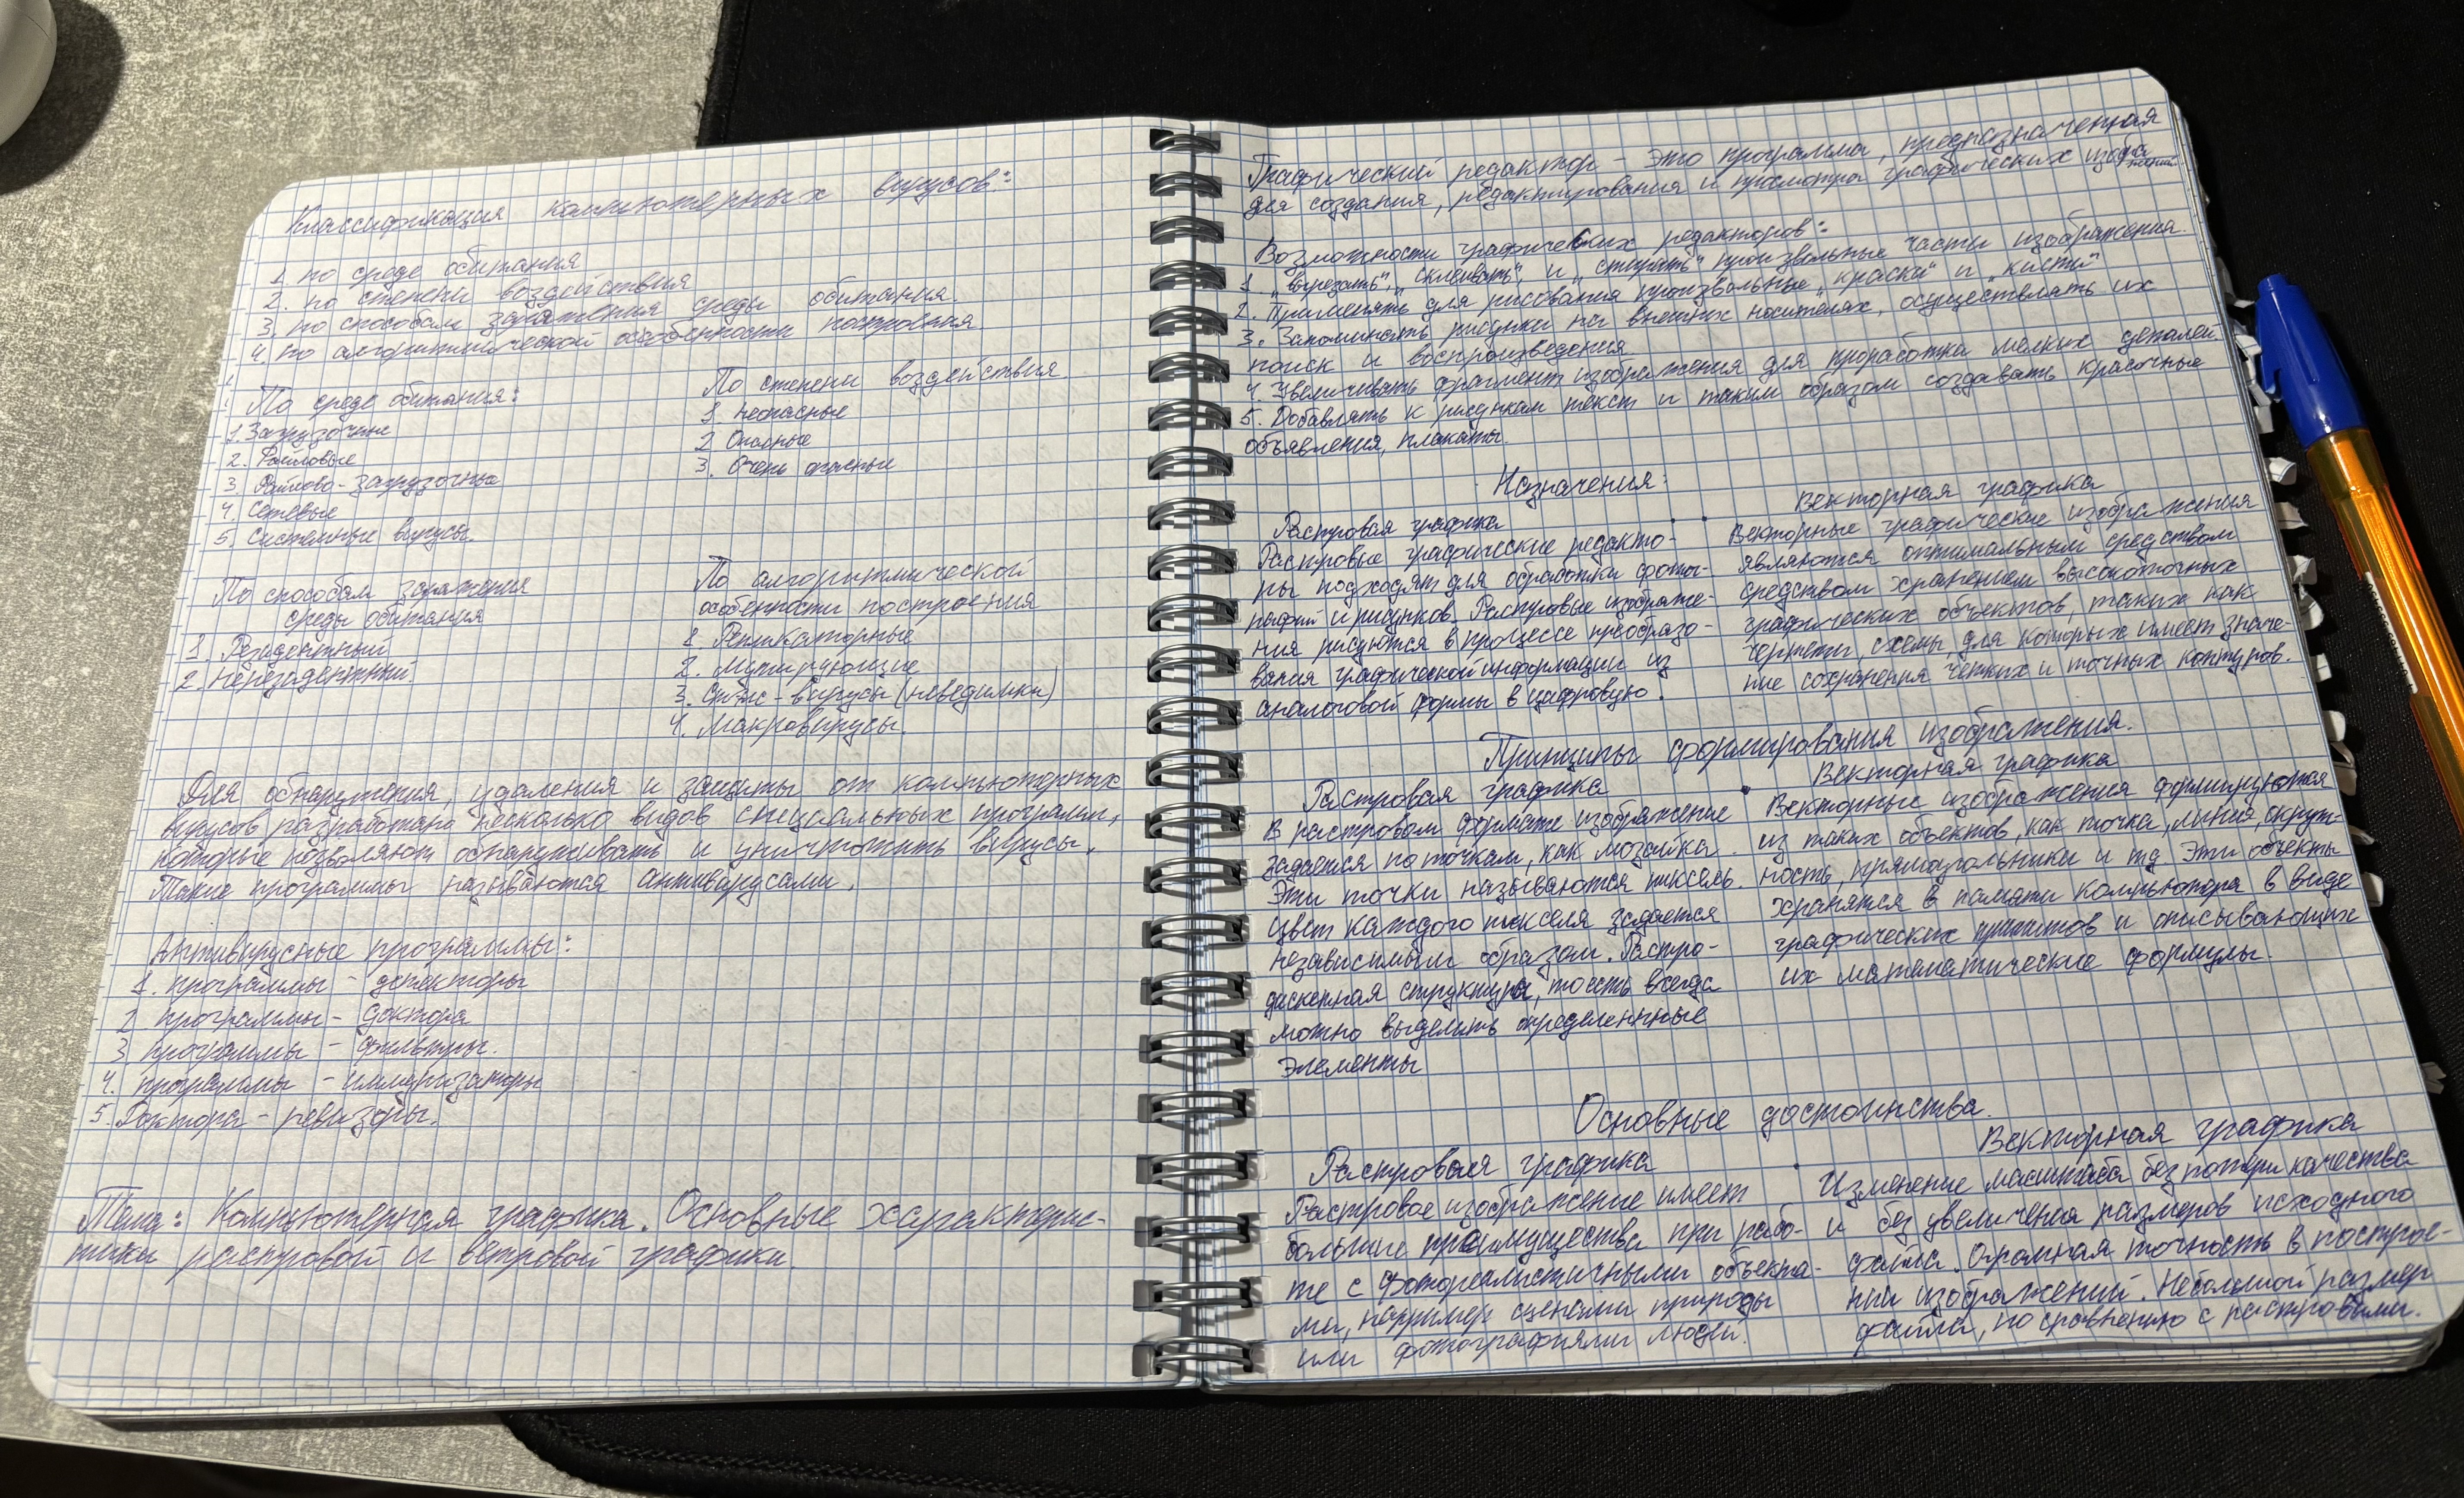 Классификация компьютерных вирусов:
1. по среде обитания
2. по степени воздействия
3. по способам заражения среды обитания.
4. по алгоритмической особенности построения
По среде обитания:
1. Загрузочные
2. Файловые
3. Файлово-загрузочные
4. Сетевые
5. Системные вирусы.
По степени воздействия
1. Неопасные
2 Опасные
3. Очень опасные
По способам заражения
среды обитания
1. Резидентный
2. Нерезидентный
По алгоритмической
особенности построения
1. Репликаторные
2. Мутирующие
3. Стэлс-вирусы (невидимки)
4. Макровирусы.
Для обнаружения, удаления и защиты от компьютерных
вирусов разработано несколько видов специальных программ,
которые позволяют обнаруживать и уничтожить вирусы.
Такие программы называются антивирусами.
Антивирусные программы:
1. программы - детекторы
2 программы - доктора
3 программы - фильтры.
4. программы - иммунизаторы
5. Доктора - ревизоры.
Тема: Компьютерная графика. Основные характерис-
тики растровой и ветровой графики.
Графический редактор - это программа, предназначенная
для создания, редактирования и просмотра графических изображений
Возможности графических редакторов:
1. "вырезать", "склеивать", и "стирать" произвольные части изображения.
2. Применять для рисования произвольные "краски" и "кисти"
3. Запоминать рисунки на внешних носителях, осуществлять их
поиск и воспроизведения
4. Увеличивать фрагмент изображения для проработки мелких деталей.
5. Добавлять к рисункам текст и таким образом создавать красочные
объявления, плакаты.
Назначения:
Растровая графика
Растровые графические редакто-
ры подходят для обработки фото-
рафий и рисунков. Растровые изображе-
ния рисуются в процессе преобразо-
вания графической информации из
аналоговой формы в цифровую.
Векторная графика
Векторные графические изображения
являются оптимальным средством
средством хранением высокоточных
графических объектов, таких как
чертежи схемы, для которых имеет значе-
ние сохранения четких и точных контуров.
Принципы формирования изображения.
Растровая графика
В растровом формате изображение
задается по точкам, как мозайка.
Эти точки называются пиксель.
Цвет каждого пикселя задается
независимым образом. Растро-
дискетная структура, тоесть всегда
можно выделить определенные
элементы
Векторная графика
Векторные изображения формируются
из таких объектов, как точка, линия, окруж-
ность, прямоугольники и тд Эти объекты
хранятся в памяти компьютора в виде
графических примитов и описывающих
их математические формулы.
Основные достоинства.
Растровая графика
Растровое изображение имеет
большие преимущества при рабо-
те с фотореалистичными объекта-
ми, например сценами природы
или фотографиями людей.
Векторная графика
Изменение масштаба без потери качества
и без увеличения размеров исходного
файла. Огромная точность в построе-
нии изображений. Небольшой размер
файла, по сравнению с растровыми.